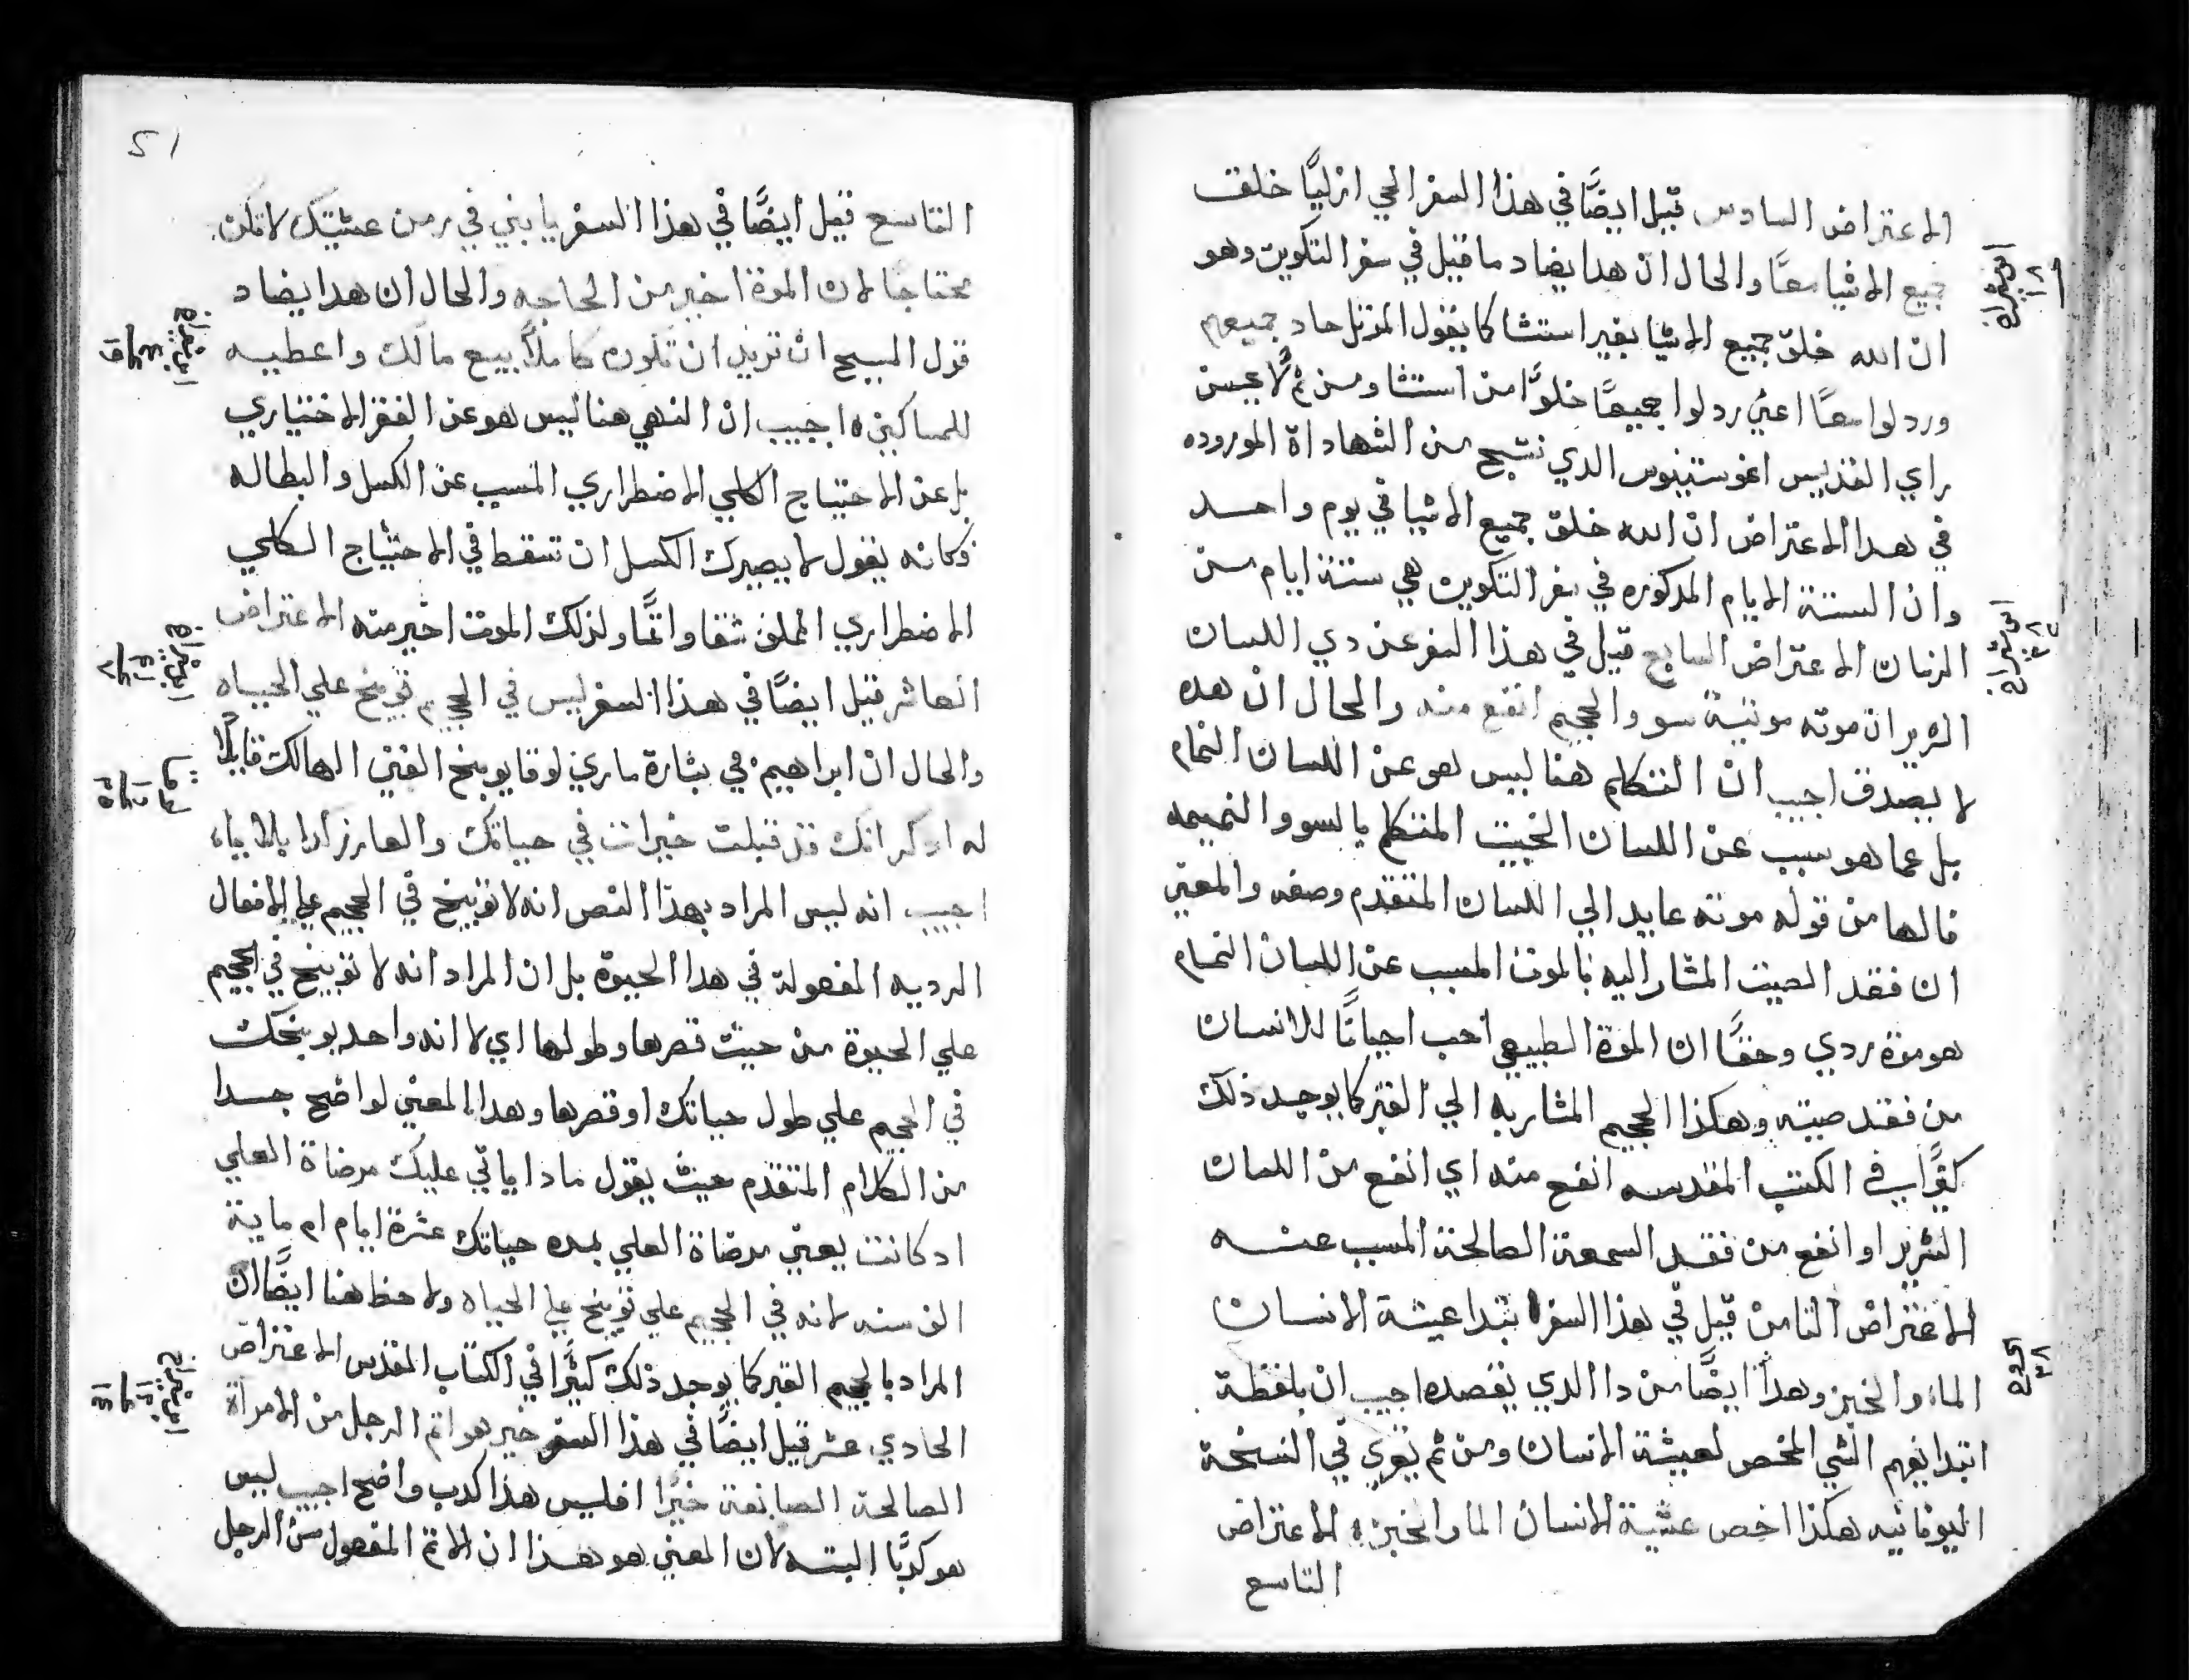 الاعتراض السادس قيل ايضًا في هذا السفر الحي ازليًا خلقت
جميع الاشيا معًا والحال ان هدا يضاد ما قيل في سفر التكوين وهو
ان الله خلق جميع الاشيا بغير استثنا كما يقول المرتل حاد جميعهم
وردلوا معًا اعني ردلوا جميعًا خلوًا من استثنا ومن ثم لا
راي القديس اغوستينوس الدي نتج من الشهاداة الموروده
في هدا الاعتراض ان الله خلق جميع الاشيا في يوم واحد
وان الستة الايام المدكوره في سفر التكوين هي ستة ايام من
الزمان الاعتراض السابع قيل في هذا السفر عن دي اللسان
الشرير ان موته موتية سو والجحيم انفع منه والحال ان هده
لا يصدق اجيب ان التكلم هنا ليس هو عن اللسان النمام
بل عما هو سبب عن اللسان الخبيث المتكلم بالسو والنميمه
فالها من قوله موته عايد الي اللسان المتقدم وصفه والمعني
ان فقد الصيت المشار اليه بالموت المسبب عن اللسان النمام
هو موة ردي وحقًا ان الموة الطبيعي احب احيانًا للانسان
من فقد صيته وهكذا الجحيم المشار به الي القبر كما يوجد ذلك
كثيرًا في الكتب المقدسه انفع منه اي انفع من اللسان
الشرير او انفع من فقد السمعة الصالحة المسبب عنه
الاعتراض الثامن قيل في هذا السفر ابتدا عيشة الانسان
الماء والخبز وهدا ايضًا من دا الدي يقصده اجيب ان بلفظة
ابتدا يفهم الشي المخص لعيشة الانسان ومن ثم يقري في النسخة
اليونانيه هكذا اخص عشية الانسان الما والخبز. الاعتراض
التاسع
51
التاسع قيل ايضًا في هذا السفر يا بني في زمن عشيتك لا تكن
محتاجا لان الموة اخير من الحاجه والحال ان هدا يضاد
قول المسيح ان تريد ان تكون كاملًا بيع مالك واعطيه
للمساكين اجيب ان النهي هنا ليس هو عن الفقر الاختياري
بل عن الاحتياج الكلي الاضطراري المسبب عن الكسل والبطاله
وكانه يقول لا يصيرك الكسل ان تسقط في الاحتياج الكلي
الاضطراري المملو شقا واثمًا ولذلك الموت اخير منه الاعتراض
العاشر قيل ايضًا في هذا السفر ليس في الجحيم توبيخ علي الحياه
والحال ان ابراهيم في بشارة ماري لوقا يوبخ الغني الهالك قايلًا
له ادكر انك قد قبلت خيرات في حياتك والعازر
اجيب انه ليس المراد بهذا النص انه لا توبيخ في الجحيم علي الافعال
الرديه المفعولة في هدا الحيوة بل ان المراد انه لا توبيخ في الجحيم
علي الحيوة من حيث قصرها وطولها اي لا انه واحد يوبخك
في الجحيم علي طول حياتك او قصرها وهدا المعني لواضح جدا
من الكلام المتقدم حيث يقول مادا ياتي عليك مرضاة العلي
ادكانت يعني مرضاة العلي بمده حياتك عشرة ايام ام ماية
الف سنه لانه في الجحيم علي توبيخ علي الحياه ولاحظ هنا ايضًا ان
المراد بالجحيم القبر كما يوجد ذلك كثيرًا في الكتاب المقدس الاعتراض
الحادي عشر قيل ايضًا في هذا السفر خير هو اثم الرجل من الامراة
الصالحة الصانعة خيرًا افليس هذا كدب واضح اجيب ليس
هو كدبًا البته لان المعني هو هذا ان الاثم المفعول من الرجل